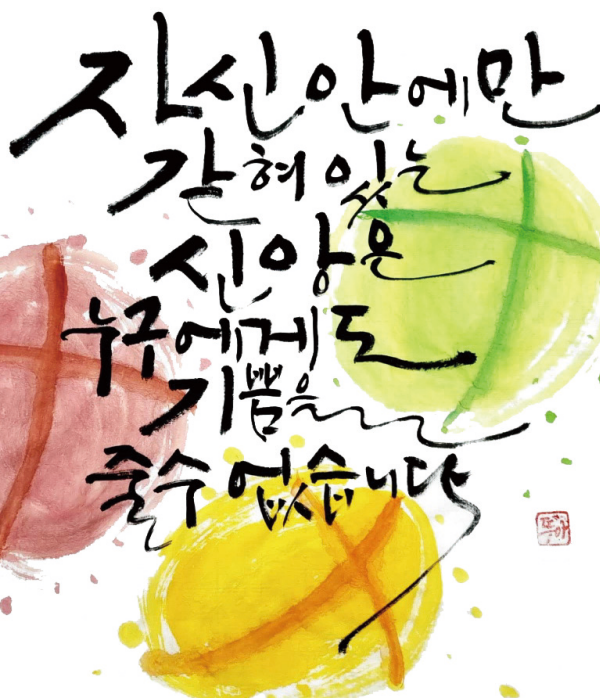 자신 안에만
갇혀 있는
신앙은
누구에게도
기쁨을
줄 수 없습니다